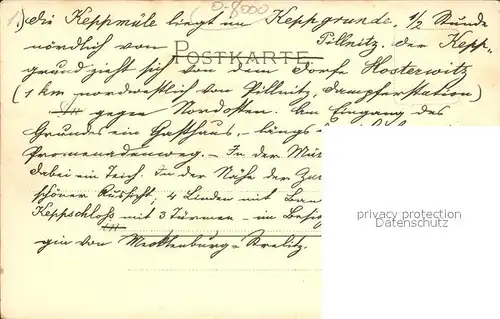 1.) Die Keppmüle liegt im Keppgrunde, 1/2 Stunde
D-8000
nördlich von Pillnitz. Der Kepp-
POSTKARTE
grund zieht sich von dem Dorfe Hosterwitz
(1 km nordwestlich von Pillnitz, Dampferstation)
gegen Nordosten. Am Eingang des
Grundes ein Gasthaus, längs
Promenadenweg. – In der Mü
dabei ein Teich. In der Nähe der Zu
schöner Aussicht; 4 Linden mit Ban
Keppschloß mit 3 Türmen – im Besi
gin von Mecklenburg-Strelitz.
privacy protection
Datenschutz